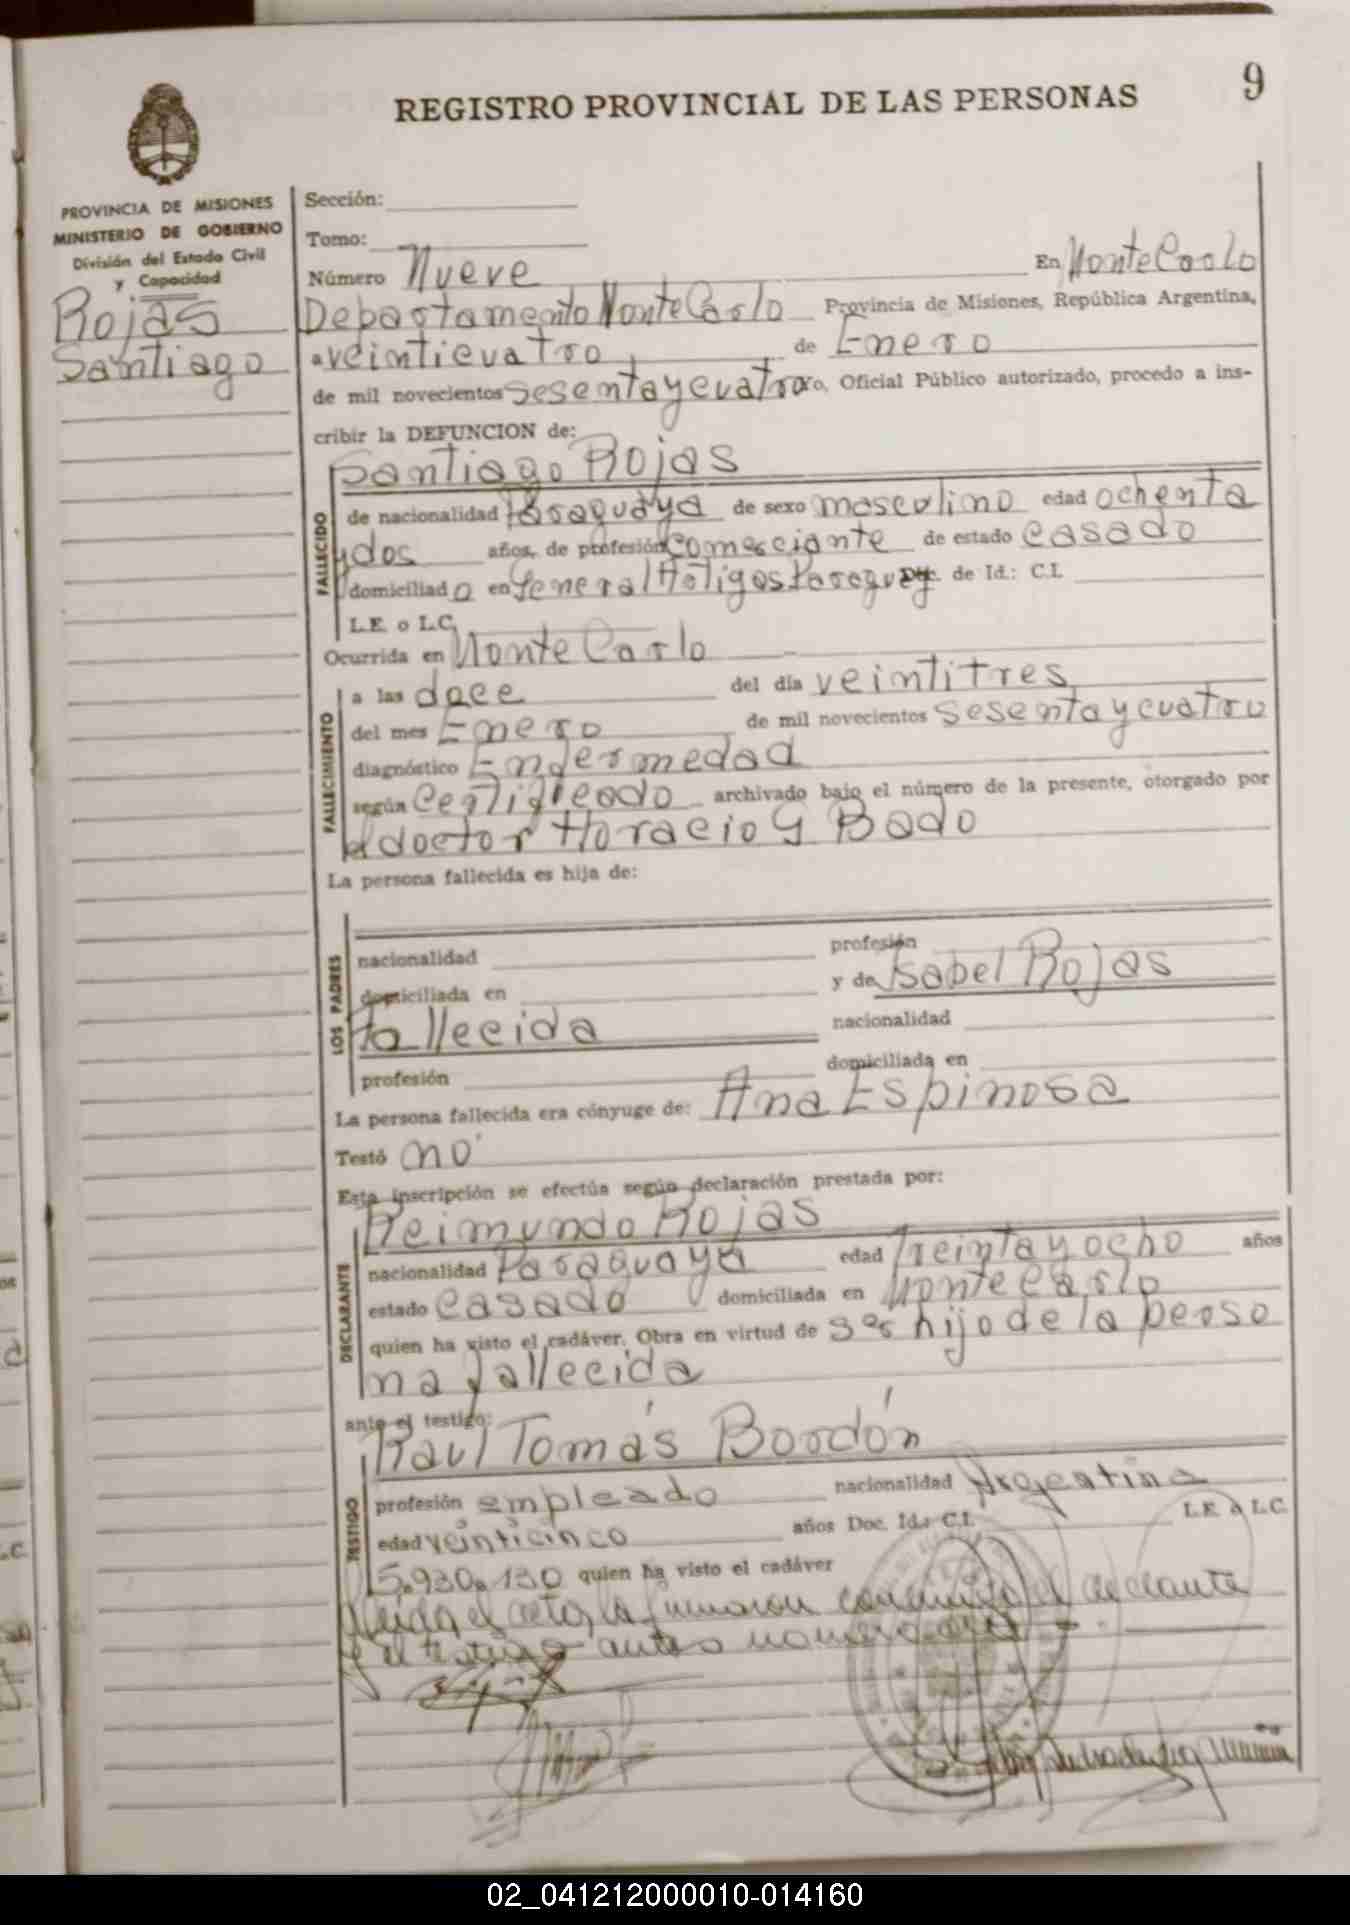 9
REGISTRO PROVINCIAL DE LAS PERSONAS
PROVINCIA DE MISIONES
MINISTERIO DE GOBIERNO
División del Estado Civil
y Capacidad
Rojas
Santiago
Sección:
Tomo:
Número Nueve En Monte Carlo
Departamento Monte Carlo Provincia de Misiones, República Argentina,
a veinticuatro de Enero
de mil novecientos sesenta y cuatro yo, Oficial Público autorizado, procedo a ins-
cribir la DEFUNCION de:
Santiago Rojas
FALLECIDO
de nacionalidad Paraguaya de sexo masculino edad ochenta
y dos años, de profesión comerciante de estado casado
domiciliado en General Artigos Paraguay Doc. de Id.: C.I.
L.E. o L.C.
Ocurrida en Monte Carlo
FALLECIMIENTO
a las doce del día veintitres
del mes Enero de mil novecientos sesenta y cuatro
diagnóstico Enfermedad
según Certificado archivado bajo el número de la presente, otorgado por
el doctor Horacio G Bado
La persona fallecida es hija de:
LOS PADRES
nacionalidad profesión
domiciliada en y de Isabel Rojas
Fallecida nacionalidad
profesión domiciliada en
La persona fallecida era cónyuge de: Ana Espinosa
Testó no
Esta inscripción se efectúa según declaración prestada por:
Reimundo Rojas
DECLARANTE
nacionalidad Paraguaya edad Treinta y ocho años
estado casado domiciliada en Monte Carlo
quien ha visto el cadáver. Obra en virtud de ser hijo de la perso
na fallecida
ante el testigo:
Raul Tomás Bordón
TESTIGO
profesión empleado nacionalidad Argentina
edad veinticinco años Doc. Id.: C.I. L.E. o L.C.
5.930.130 quien ha visto el cadáver
Leida el acta, la firmaron conmigo el declarante
y el testigo antes nombrado
02_041212000010-014160